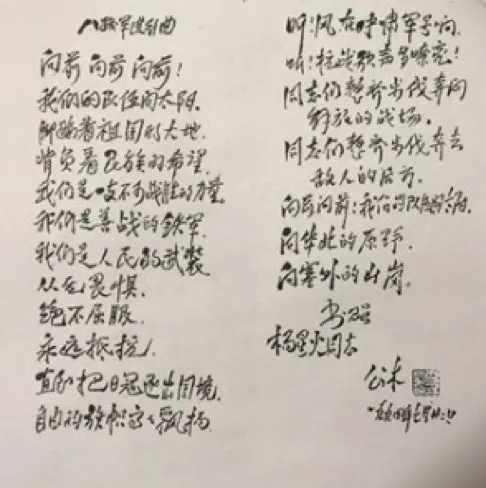 八路军进行曲
向前 向前 向前!
我们的队伍向太阳.
脚踏着祖国的大地.
背负着民族的希望.
我们是一支不可战胜的力量.
我们是善战的铁军.
我们是人民的武装.
从无畏惧.
绝不屈服.
永远抵抗.
直到把日寇逐出国境.
自由的旗帜高高飘扬.
听!风在呼啸军号响.
听!抗战歌声多嘹亮!
同志们整齐步伐奔向
解放的战场.
同志们整齐步伐奔去
敌人的后方.
向前向前!我们的队伍向太阳.
向华北的原野.
向塞外的山岗.
书赠
杨星火同志
公木